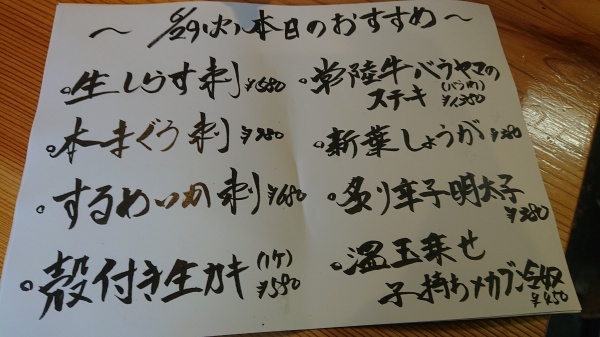 〜 6/29(火)本日のおすすめ 〜
。生しらす刺 ¥580
。本まぐろ刺 ¥980
。するめいか刺 ¥680
。殻付き生カキ (1ケ) ¥590
。常陸牛バラヤマの
ステキ (バラ肉) ¥1,280
。新葉しょうが ¥380
。炙り辛子明太子
¥380
。温玉乗せ
子持ちメカブ ¥450